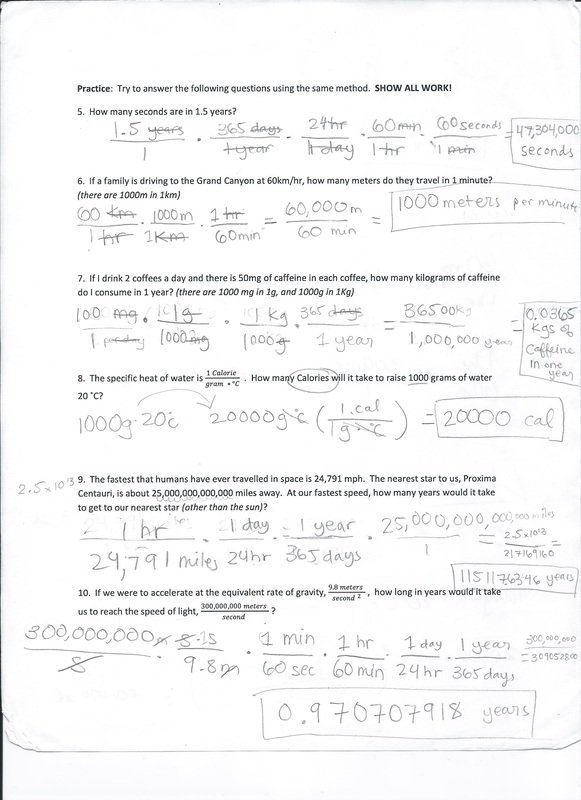 Practice: Try to answer the following questions using the same method. SHOW ALL WORK!
5. How many seconds are in 1.5 years?
1.5 years / 1 · 365 days / 1 year · 24 hr / 1 day · 60 min / 1 hr · 60 seconds / 1 min = 47,304,000 seconds
6. If a family is driving to the Grand Canyon at 60km/hr, how many meters do they travel in 1 minute?
(there are 1000m in 1km)
60 km / 1 hr · 1000 m / 1 Km · 1 hr / 60 min = 60,000 m / 60 min = 1000 meters per minute
7. If I drink 2 coffees a day and there is 50mg of caffeine in each coffee, how many kilograms of caffeine
do I consume in 1 year? (there are 1000 mg in 1g, and 1000g in 1Kg)
100 mg / 1 per day · 1 g / 1000 mg · 1 Kg / 1000 g · 365 days / 1 year = 36500 Kg / 1,000,000 year = 0.0365 Kgs of Caffeine In one year
8. The specific heat of water is 1 Calorie / gram •°C . How many Calories will it take to raise 1000 grams of water
20 °C?
1000g · 20°C 20000 g °C ( 1 cal / 1 g °C ) = 20000 cal
2.5 x 10^13
9. The fastest that humans have ever travelled in space is 24,791 mph. The nearest star to us, Proxima
Centauri, is about 25,000,000,000,000 miles away. At our fastest speed, how many years would it take
to get to our nearest star (other than the sun)?
1 hr / 24,791 miles · 1 day / 24 hr · 1 year / 365 days · 25,000,000,000,000 miles / 1 = 2.5 x 10^13 / 217169160 =
11511763.46 years
10. If we were to accelerate at the equivalent rate of gravity, 9.8 meters / second ² , how long in years would it take
us to reach the speed of light, 300,000,000 meters / second ?
300,000,000 m / s · s · 1 s / 9.8 m · 1 min / 60 sec · 1 hr / 60 min · 1 day / 24 hr · 1 year / 365 days 300,000,000 / = 309052800
0.970707918 years